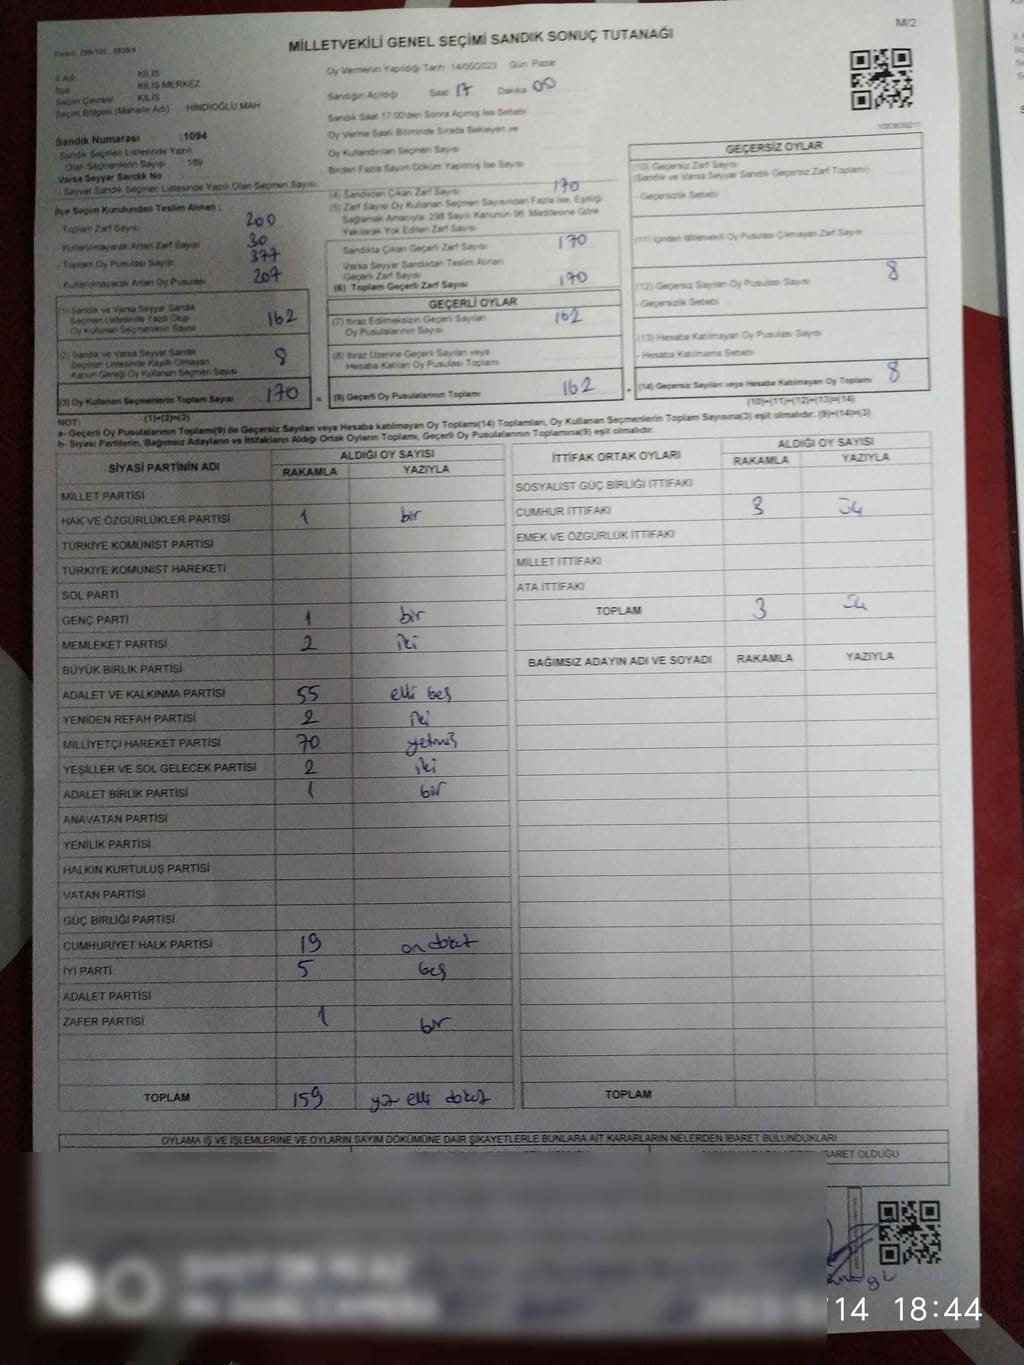 M/2
MİLLETVEKİLİ GENEL SEÇİMİ SANDIK SONUÇ TUTANAĞI
İl Adı : KİLİS
İlçe : KİLİS MERKEZ
Seçim Çevresi : KİLİS
Seçim Bölgesi (Mahalle Adı) : HİNDİOĞLU MAH
Sandık Numarası : 1094
Sandık Seçmen Listesinde Yazılı
Olan Seçmenlerin Sayısı : 189
Varsa Seyyar Sandık No
- Seyyar Sandık Seçmen Listesinde Yazılı Olan Seçmen Sayısı:
İlçe Seçim Kurulundan Teslim Alınan ;
Toplam Zarf Sayısı 200
- Kullanılmayarak Artan Zarf Sayısı 30
- Toplam Oy Pusulası Sayısı 377
- Kullanılmayarak Artan Oy Pusulası 207
(1) Sandık ve Varsa Seyyar Sandık
Seçmen Listesinde Yazılı Olup
Oy Kullanan Seçmenlerin Sayısı 162
(2) Sandık ve Varsa Seyyar Sandık
Seçmen Listesinde Kayıtlı Olmayan
Kanun Gereği Oy Kullanan Seçmen Sayısı 8
(3) Oy Kullanan Seçmenlerin Toplam Sayısı 170
(1)+(2)=(3)
Oy Vermenin Yapıldığı Tarih :14/05/2023 Gün: Pazar
Sandığın Açıldığı Saat 17 Dakika 00
Sandık Saat 17:00'den Sonra Açılmış İse Sebebi
Oy Verme Saati Bitiminde Sırada Bekleyen ve
Oy Kullandırılan Seçmen Sayısı
Birden Fazla Sayım Döküm Yapılmış İse Sayısı
(4) Sandıktan Çıkan Zarf Sayısı 170
(5) Zarf Sayısı Oy Kullanan Seçmen Sayısından Fazla İse, Eşitliği
Sağlamak Amacıyla; 298 Sayılı Kanunun 98. Maddesine Göre
Yakılarak Yok Edilen Zarf Sayısı
Sandıkta Çıkan Geçerli Zarf Sayısı 170
Varsa Seyyar Sandıktan Teslim Alınan
Geçerli Zarf Sayısı
(6) Toplam Geçerli Zarf Sayısı 170
GEÇERLİ OYLAR
(7) İtiraz Edilmeksizin Geçerli Sayılan
Oy Pusulalarının Sayısı 162
(8) İtiraz Üzerine Geçerli Sayılan veya
Hesaba Katılan Oy Pusulası Toplamı
(9) Geçerli Oy Pusulalarının Toplamı 162
GEÇERSİZ OYLAR
(10) Geçersiz Zarf Sayısı
(Sandık ve Varsa Seyyar Sandık Geçersiz Zarf Toplamı)
- Geçersizlik Sebebi
(11) İçinden Milletvekili Oy Pusulası Çıkmayan Zarf Sayısı
(12) Geçersiz Sayılan Oy Pusulası Sayısı 8
- Geçersizlik Sebebi
(13) Hesaba Katılmayan Oy Pusulası Sayısı
- Hesaba Katılmama Sebebi
(14) Geçersiz Sayılan veya Hesaba Katılmayan Oy Toplamı 8
(10)+(11)+(12)+(13)=(14)
NOT:
a- Geçerli Oy Pusulalarının Toplamı(9) ile Geçersiz Sayılan veya Hesaba katılmayan Oy Toplamı(14) Toplamları, Oy Kullanan Seçmenlerin Toplam Sayısına(3) eşit olmalıdır. (9)+(14)=(3)
b- Siyasi Partilerin, Bağımsız Adayların ve İttifakların Aldığı Ortak Oyların Toplamı, Geçerli Oy Pusulalarının Toplamına(9) eşit olmalıdır.
SİYASİ PARTİNİN ADI ALDIĞI OY SAYISI
RAKAMLA YAZIYLA
MİLLET PARTİSİ
HAK VE ÖZGÜRLÜKLER PARTİSİ 1 bir
TÜRKİYE KOMÜNİST PARTİSİ
TÜRKİYE KOMÜNİST HAREKETİ
SOL PARTİ
GENÇ PARTİ 1 bir
MEMLEKET PARTİSİ 2 iki
BÜYÜK BİRLİK PARTİSİ
ADALET VE KALKINMA PARTİSİ 55 elli beş
YENİDEN REFAH PARTİSİ 2 iki
MİLLİYETÇİ HAREKET PARTİSİ 70 yetmiş
YEŞİLLER VE SOL GELECEK PARTİSİ 2 iki
ADALET BİRLİK PARTİSİ 1 bir
ANAVATAN PARTİSİ
YENİLİK PARTİSİ
HALKIN KURTULUŞ PARTİSİ
VATAN PARTİSİ
GÜÇ BİRLİĞİ PARTİSİ
CUMHURİYET HALK PARTİSİ 19 on dokuz
İYİ PARTİ 5 beş
ADALET PARTİSİ
ZAFER PARTİSİ 1 bir
TOPLAM 159 yüz elli dokuz
İTTİFAK ORTAK OYLARI ALDIĞI OY SAYISI
RAKAMLA YAZIYLA
SOSYALİST GÜÇ BİRLİĞİ İTTİFAKI
CUMHUR İTTİFAKI 3 üç
EMEK VE ÖZGÜRLÜK İTTİFAKI
MİLLET İTTİFAKI
ATA İTTİFAKI
TOPLAM 3 üç
BAĞIMSIZ ADAYIN ADI VE SOYADI RAKAMLA YAZIYLA
TOPLAM
OYLAMA İŞ VE İŞLEMLERİNE VE OYLARIN SAYIM DÖKÜMÜNE DAİR ŞİKAYETLERLE BUNLARA AİT KARARLARIN NELERDEN İBARET BULUNDUKLARI
İBARET OLDUĞU
/14 18:44